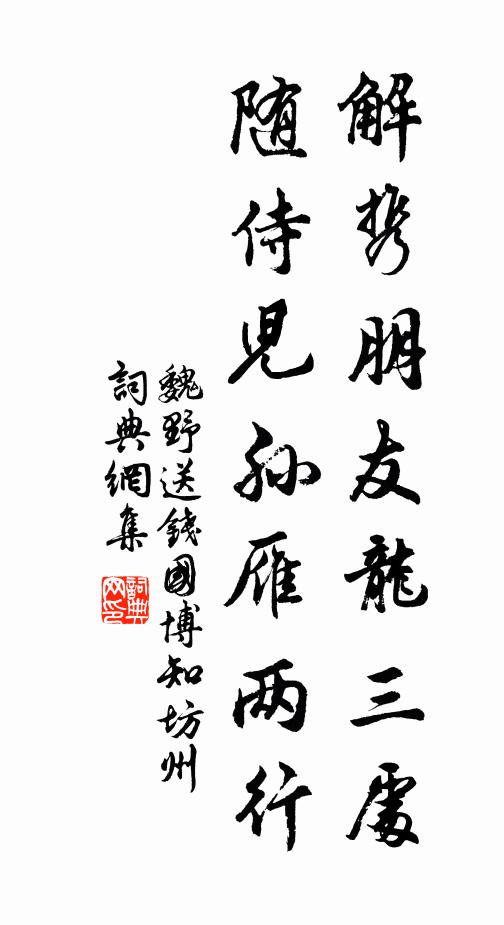 解携朋友龍三處
随侍児孫雁两行
魏野送錢國博知坊州
詞典網集
詞典網印